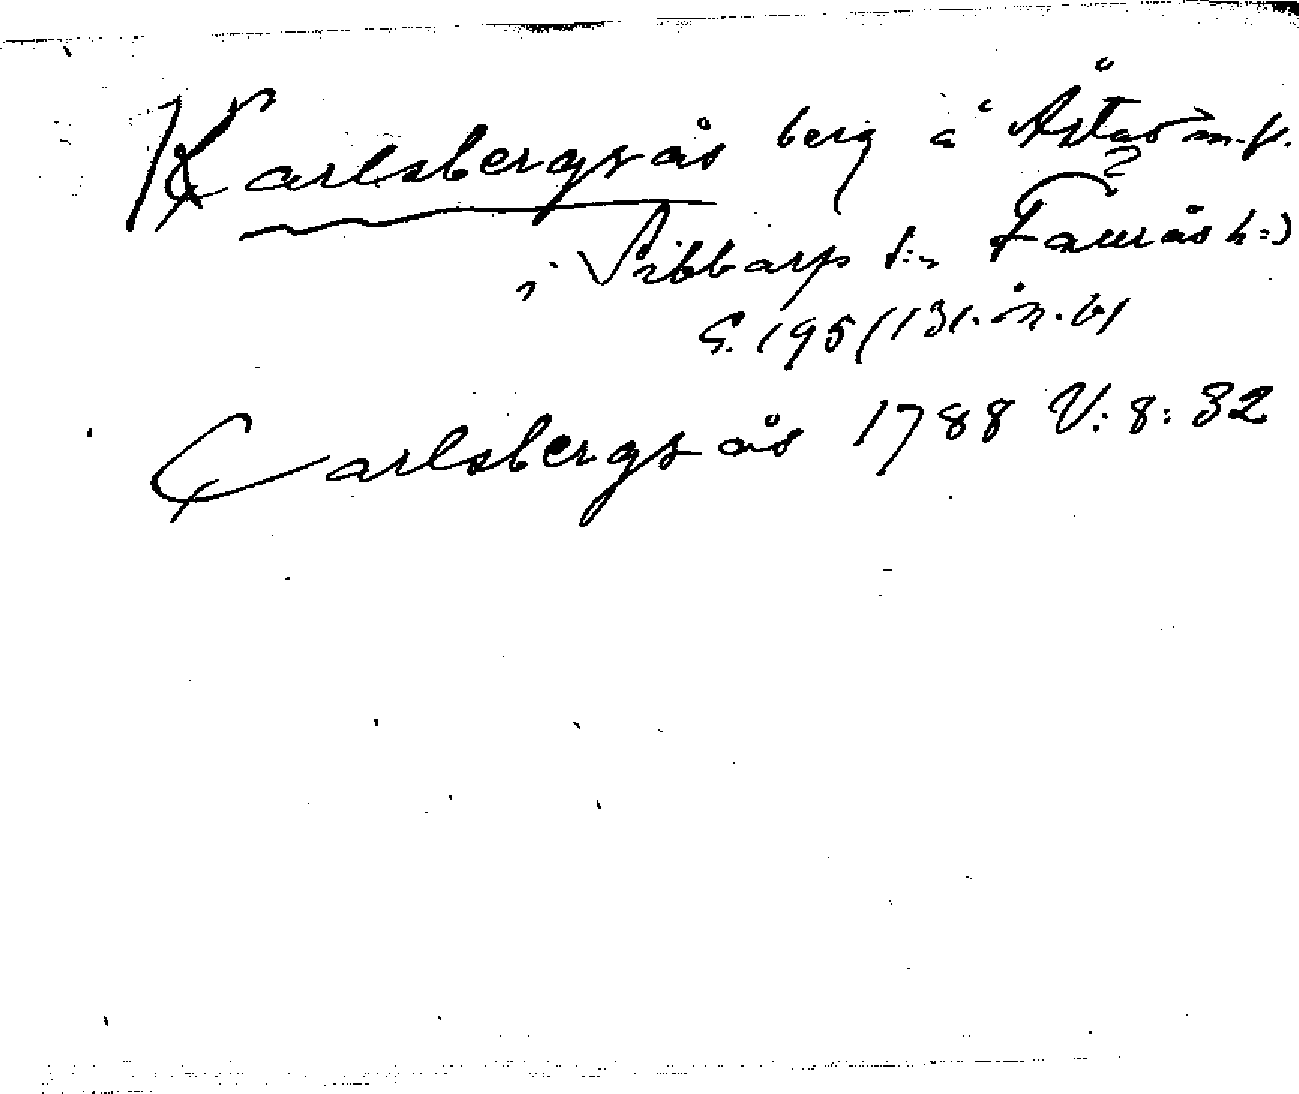 Karlsbergsås berg å Åstad m.fl.
i Sibbarp s:n Faurås h:d
S. 195 (131. n. b)
Carlsbergsås 1788 V: 8: 32